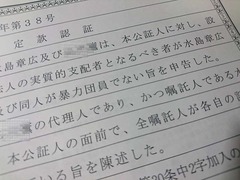 年第38号
定款認証
水島章広及び は、本公証人に対し、設
法人の実質的支配者となるべき者が水島章広
及び同人が暴力団員でない旨を申告した。
の代理人であり、かつ嘱託人である
本公証人の面前で、全嘱託人が各自の
いる旨を陳述した。
条中2字加入の